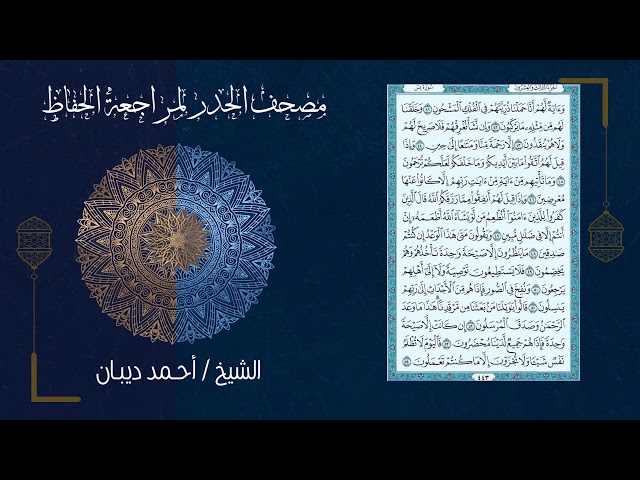 مصحف الحدر لمراجعة الحفاظ
الشيخ / أحمد ديبان
الجزء الثالث والعشرون
سورة يس
وَءَايَةٌ لَّهُمْ أَنَّا حَمَلْنَا ذُرِّيَّتَهُمْ فِي الْفُلْكِ الْمَشْحُونِ ٤١ وَخَلَقْنَا
لَهُم مِّن مِّثْلِهِ مَا يَرْكَبُونَ ٤٢ وَإِن نَّشَأْ نُغْرِقْهُمْ فَلَا صَرِيخَ لَهُمْ
وَلَا هُمْ يُنقَذُونَ ٤٣ إِلَّا رَحْمَةً مِّنَّا وَمَتَاعًا إِلَىٰ حِينٍ ٤٤ وَإِذَا
قِيلَ لَهُمُ اتَّقُوا مَا بَيْنَ أَيْدِيكُمْ وَمَا خَلْفَكُمْ لَعَلَّكُمْ تُرْحَمُونَ
٤٥ وَمَا تَأْتِيهِم مِّنْ ءَايَةٍ مِّنْ ءَايَٰتِ رَبِّهِمْ إِلَّا كَانُوا عَنْهَا
مُعْرِضِينَ ٤٦ وَإِذَا قِيلَ لَهُمْ أَنفِقُوا مِمَّا رَزَقَكُمُ اللَّهُ قَالَ الَّذِينَ
كَفَرُوا لِلَّذِينَ ءَامَنُوا أَنُطْعِمُ مَن لَّوْ يَشَاءُ اللَّهُ أَطْعَمَهُ إِنْ
أَنتُمْ إِلَّا فِي ضَلَٰلٍ مُّبِينٍ ٤٧ وَيَقُولُونَ مَتَىٰ هَٰذَا الْوَعْدُ إِن كُنتُمْ
صَٰدِقِينَ ٤٨ مَا يَنظُرُونَ إِلَّا صَيْحَةً وَٰحِدَةً تَأْخُذُهُمْ وَهُمْ
يَخِصِّمُونَ ٤٩ فَلَا يَسْتَطِيعُونَ تَوْصِيَةً وَلَا إِلَىٰ أَهْلِهِمْ
يَرْجِعُونَ ٥٠ وَنُفِخَ فِي الصُّورِ فَإِذَا هُم مِّنَ الْأَجْدَاثِ إِلَىٰ رَبِّهِمْ
يَنسِلُونَ ٥١ قَالُوا يَٰوَيْلَنَا مَن بَعَثَنَا مِن مَّرْقَدِنَا هَٰذَا مَا وَعَدَ
الرَّحْمَٰنُ وَصَدَقَ الْمُرْسَلُونَ ٥٢ إِن كَانَتْ إِلَّا صَيْحَةً
وَٰحِدَةً فَإِذَا هُمْ جَمِيعٌ لَّدَيْنَا مُحْضَرُونَ ٥٣ فَالْيَوْمَ لَا تُظْلَمُ
نَفْسٌ شَيْئًا وَلَا تُجْزَوْنَ إِلَّا مَا كُنتُمْ تَعْمَلُونَ ٥٤
٤٤٣